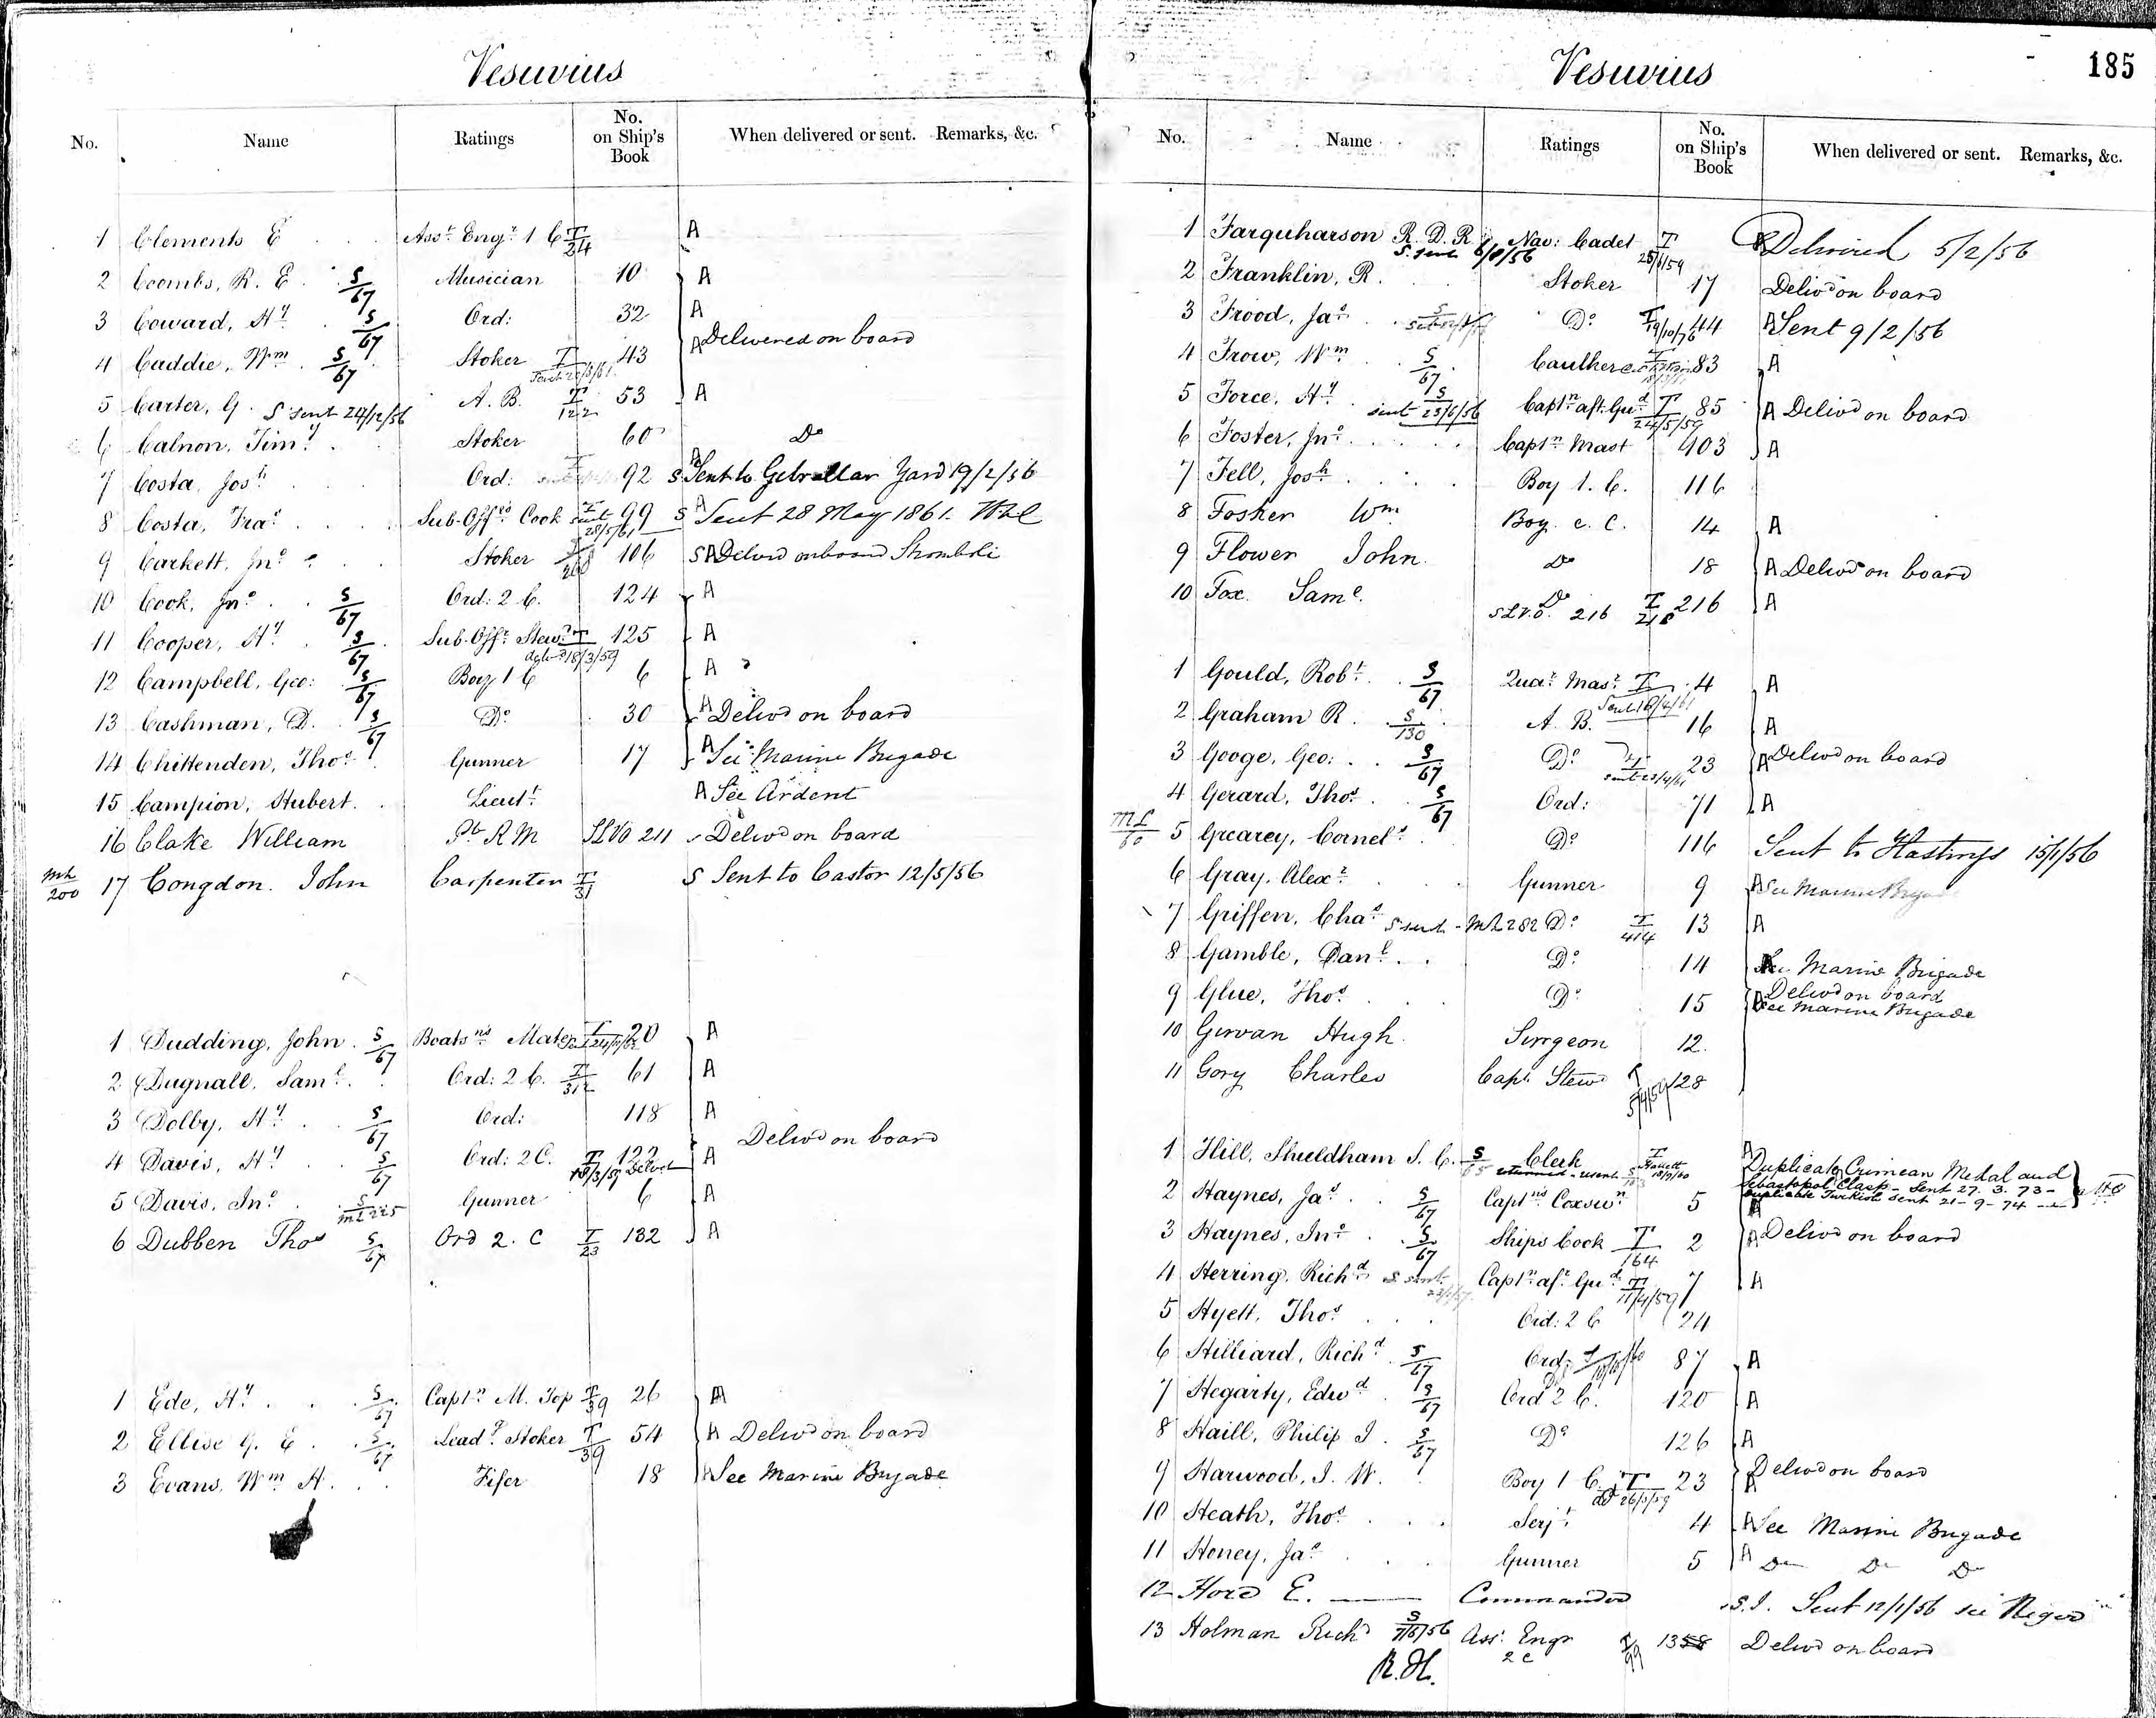 Vesuvius
No. Name Ratings No. on Ship's Book When delivered or sent. Remarks, &c.
1 Clements E Asst Engr 1 C T/24 A
2 Coombs, R. E. S/67 Musician 10 A
3 Coward, Hy S/67 Ord: 32 A
Delivered on board
4 Caddie, Wm S/67 Stoker T 43 A
5 Carter, G. S sent 24/12/56 A. B. T/122 53 A
6 Calnon, Timy Stoker 60 Do
7 Costa, Josh Ord: 92 S A Sent to Gibraltar Yard 19/2/56
8 Costa, Fras Sub-Offrs Cook T sent 28/5/61 99 S A Sent 28 May 1861.
9 Carkett, Jno Stoker 106 S A Delivd onboard Stromboli
10 Cook, Jno S/67 Ord: 2 C. 124 A
11 Cooper, Hy S/67 Sub-Offr Stewd T 18/3/59 125 A
12 Campbell, Geo: S/67 Boy 1 C 6 A
13 Cashman, D. S/67 Do 30 A Delivd on board
14 Chittenden, Thos Gunner 17 A See Marine Brigade
15 Campion, Hubert. Lieut A See Ardent
16 Clake William Pt R M SLVO 211 Delivd on board
ML 200 17 Congdon. John Carpenter T/31 S Sent to Castor 12/5/56
1 Dudding, John S/67 Boatsns Mate T 20 A
2 Dugnall. Saml Ord: 2 C. T/312 61 A
3 Dolby, Hy S/67 Ord: 118 A
Delivd on board
4 Davis, Hy S/67 Ord: 2C. T 18/3/59 Delivd 122 A
5 Davis, Jno S/ML 225 Gunner 6 A
6 Dubben Thos S/67 Ord 2. C T/23 132 A
1 Ede, Hy S/67 Captn M. Top T/39 26 A
2 Ellise G. E. S/67 Leadg Stoker T/39 54 A Delivd on board
3 Evans, Wm H. Fifer 18 A See Marine Brigade
Vesuvius 185
No. Name Ratings No. on Ship's Book When delivered or sent. Remarks, &c.
1 Farquharson R. D. R. S. sent 6/8/56 Nav: Cadet T Delivered 5/2/56
2 Franklin, R. Stoker 17 Delivd on board
3 Frood, Jas Do T 19/10/76 44 A Sent 9/2/56
4 Frow, Wm S/67 Caulker 83 A
5 Force, Hy S sent 23/6/56 Captn aft. Gud T 24/5/59 85 A Delivd on board
6 Foster, Jno Captn Mast 403 A
7 Fell, Josh Boy 1. C. 116
8 Fosker Wm Boy. 2. C. 14 A
9 Flower John Do 18 A Delivd on board
10 Fox. Saml Do SLVO. 216 T/216 216 A
1 Gould, Robt S/67 Quar Masr T 4 A
2 Graham R. S/130 A. B. 16 A
3 Googe, Geo: S/67 Do sent 23/4/61 23 A Delivd on board
4 Gerard, Thos S/67 Ord: 71 A
ML 60 5 Grearey, Cornels Do 116 Sent to Hastings 15/1/56
6 Gray, Alexr Gunner 9 A See Marine Brigad
7 Griffen, Chas S sent - ML 282 Do T/414 13 A
8 Gamble, Danl Do 14 See Marine Brigade
Delivd on board
9 Glue, Thos Do 15 See Marine Brigade
10 Girvan Hugh. Surgeon 12.
11 Gory Charles Capt Stewd T 5/4/59 128
1 Hill, Shueldham S. C. S/65 Clerk T 18/9/60 A Duplicate Crimean Medal and
Sebastopol Clasp - Sent 27. 3. 73 -
Duplicate Turkish sent 21-9-74
2 Haynes, Jas S/67 Captns Coxswn 5 A
3 Haynes, Jno S/67 Ships Cook T/164 2 A Delivd on board
4 Herring, Richd S sent Captn aft Gud T 11/4/59 7 A
5 Hyett, Thos Ord: 2 C 24
6 Hilliard, Richd S/67 Ord: 87 A
7 Hegarty, Edwd S/67 Ord 2 C. 120 A
8 Haill, Philip J. S/67 Do 126 A
Delivd on board
9 Harwood, J. W. Boy 1 C. T 26/5/59 23 A
10 Heath, Thos Serjt 4 A See Marine Brigade
11 Honey, Jas Gunner 5 A Do Do Do
12 Hore E. Commander S.I. Sent 12/1/56 see "Niger"
13 Holman Richd S 7/8/56 Asst Engr T/99 Delivd on board
2 C
R. H.